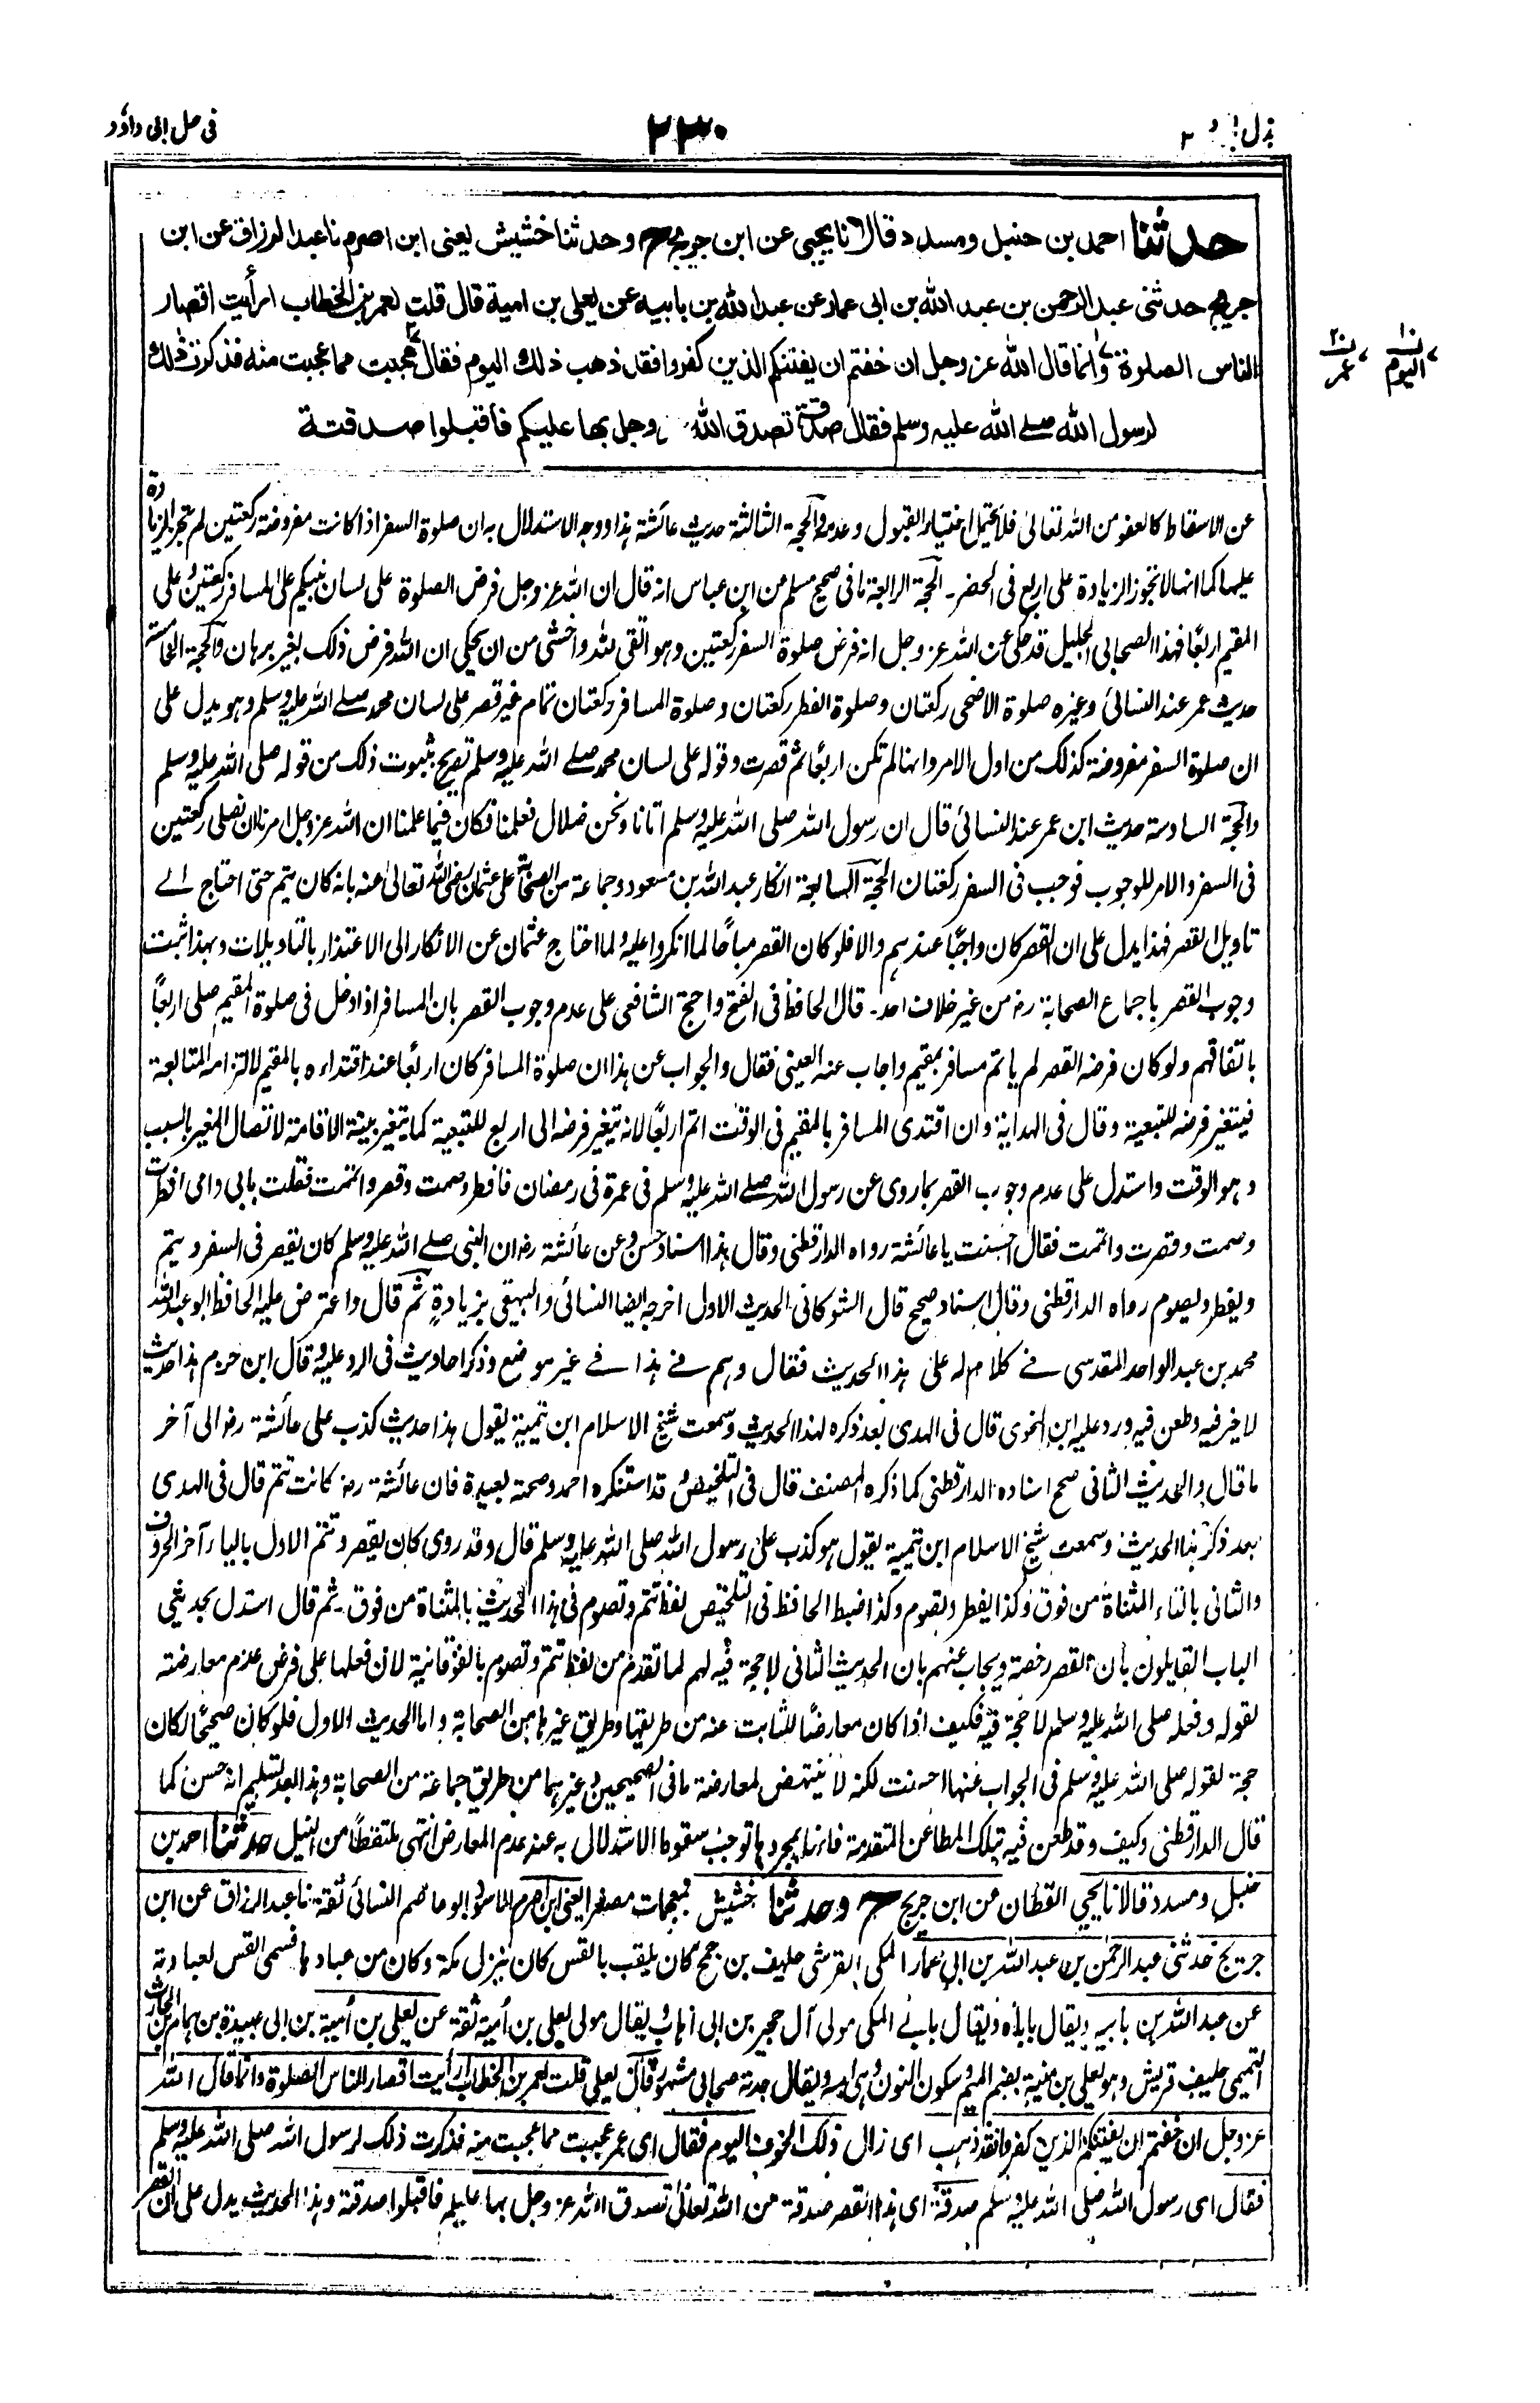 فی حل ابی داؤد
۲۳۰
بذل
حدثنا احمد بن حنبل ومسدد قالا نا یحیی عن ابن جریج ح وحدثنا خشیش یعنی ابن اصرم نا عبد الرزاق عن ابن
جریج حدثنی عبد الرحمن بن عبد الله بن ابی عمار عن عبد الله بن بابیه عن یعلی بن امیة قال قلت لعمر بن الخطاب ارأیت اقصار
الناس الصلوة وانما قال الله عز وجل ان خفتم ان یفتنکم الذین کفروا فقد ذهب ذلك الیوم فقال عجبت مما عجبت منه فذکرت ذلك
لرسول الله صلے الله علیه وسلم فقال صدقة تصدق الله وجل بها علیکم فاقبلوا صدقته
ن الیوم
ن عمر
عن الاسقاط کالعفو من الله تعالیٰ فلا یحتمل اختیار القبول وعدمه والحجة الثالثة حدیث عائشة هذا ووجه الاستدلال به ان صلوة السفر اذا کانت مفروضة رکعتین لم تجز الزیادة
علیها کما انها لا تجوز الزیادة علی اربع فی الحضر۔ الحجة الرابعة ما فی صحیح مسلم من ابن عباس انه قال ان الله عز وجل فرض الصلوة علی لسان نبیکم علی المسافر رکعتین وعلی
المقیم اربعًا فهذا الصحابی الجلیل قد حکی عن الله عز وجل انه فرض صلوة السفر رکعتین وهو اتقی لله واخشی من ان یحکی ان الله فرض ذلک بغیر برهان والحجة الخامسة
حدیث عمر عند النسائی وغیره صلوة الاضحی رکعتان وصلوة الفطر رکعتان وصلوة المسافر رکعتان تمام غیر قصر علی لسان محمد صلے الله علیه وسلم وهو یدل علی
ان صلوة السفر مفروضة کذلک من اول الامر وانها لم تکن اربعًا ثم قصرت وقوله علی لسان محمد صلے الله علیه وسلم تصریح بثبوت ذلک من قوله صلی الله علیه وسلم
والحجة السادسة حدیث ابن عمر عند النسائی قال ان رسول الله صلی الله علیه وسلم اتانا ونحن ضلال فعلمنا فکان فیما علمنا ان الله عز وجل امرنا ان نصلی رکعتین
فی السفر والامر للوجوب فوجب فی السفر رکعتان الحجة السابعة انکار عبد الله بن مسعود وجماعة من الصحابة علی عثمان رضی الله تعالیٰ عنه بانه کان یتم حتی احتاج الے
تاویل القصر فهذا یدل علی ان القصر کان واجبًا عندهم والا فلو کان القصر مباحًا لما انکروا علیه ولما احتاج عثمان عن الانکار الی الاعتذار بالتاویلات وبهذا ثبت
وجوب القصر باجماع الصحابة رضہ من غیر خلاف احد۔ قال الحافظ فی الفتح واحتج الشافعی علی عدم وجوب القصر بان المسافر اذا دخل فی صلوة المقیم صلی اربعًا
باتفاقهم ولو کان فرضه القصر لم یاتم مسافر بمقیم واجاب عنه العینی فقال والجواب عن هذا ان صلوة المسافر کان اربعًا عند اقتداءه بالمقیم لالتزامه المتابعة
فیتغیر فرضه للتبعیة وقال فی الهدایة وان اقتدی المسافر بالمقیم فی الوقت اتم اربعًا لانه یتغیر فرضه الی اربع للتبعیة کما یتغیر بنیة الاقامة لاتصال المغیر بالسبب
وهو الوقت واستدل علی عدم وجوب القصر بما روی عن رسول الله صلے الله علیه وسلم فی عمرة فی رمضان فافطر وصمت وقصر واتممت فقلت بابی وامی افطرت
وصمت وقصرت واتممت فقال احسنت یا عائشة رواه الدارقطنی وقال هذا اسناد حسن وعن عائشة رضہ ان النبی صلے الله علیه وسلم کان یقصر فی السفر ویتم
ویفطر ویصوم رواه الدارقطنی وقال اسناد صحیح قال الشوکانی الحدیث الاول اخرجه ایضا النسائی والبیهقی بزیادة ثم قال واعترض علیه الحافظ ابو عبد الله
محمد بن عبد الواحد المقدسی فے کلام له علی هذا الحدیث فقال وهم فے هذا فے غیر موضع وذکر احادیث فی الرد علیه وقال ابن حزم هذا حدیث
لا خیر فیه وطعن فیه ورد علیه ابن النحوی قال فی الهدی بعد ذکره لهذا الحدیث وسمعت شیخ الاسلام ابن تیمیة یقول هذا حدیث کذب علی عائشة رضہ الی آخر
ما قال والحدیث الثانی صحح اسناده الدارقطنی کما ذکره المصنف قال فی التلخیص وقد استنکره احمد وصحته بعیدة فان عائشة رضہ کانت تتم قال فی الهدی
بعد ذکر هذا الحدیث وسمعت شیخ الاسلام ابن تیمیة یقول هو کذب علی رسول الله صلی الله علیه وسلم قال وقد روی کان یقصر وتتم الاول بالیاء آخر الحروف
والثانی بالتاء المثناة من فوق وکذا یفطر وتصوم وکذا ضبط الحافظ فی التلخیص لفظ تتم وتصوم فی هذا الحدیث بالمثناة من فوق۔ ثم قال استدل بحدیثی
الباب القایلون بان القصر رخصة ویجاب عنهم بان الحدیث الثانی لا حجة فیه لهم لما تقدم من لفظ تتم وتصوم بالفوقانیة لان فعلها علی فرض عدم معارضته
لقوله وفعله صلی الله علیه وسلم لا حجة فیه فکیف اذا کان معارضًا للثابت عنه من طریقها وطریق غیرها من الصحابة واما الحدیث الاول فلو کان صحیحًا لکان
حجة لقوله صلی الله علیه وسلم فی الجواب عنها احسنت لکنه لا ینتهض لمعارضة ما فی الصحیحین وغیرهما من طریق جماعة من الصحابة وهذا بعد تسلیم انه حسن کما
قال الدارقطنی وکیف وقد طعن فیه بتلک المطاعن المتقدمة فانها بمجردها توجب سقوط الاستدلال به عند عدم المعارض انتهی ملتقطًا من النیل حدثنا احمد بن
حنبل ومسدد قالا نا یحیی القطان عن ابن جریج ح وحدثنا خشیش بمعجمات مصغرا یعنی ابن اصرم ابو عاصم النسائی ثقة نا عبد الرزاق عن ابن
جریج حدثنی عبد الرحمٰن بن عبد الله بن ابی عمار المکی القرشی حلیف بن جمح کان یلقب بالقس کان ینزل مکة وکان من عبادها فسمی القس لعبادته
عن عبد الله بن بابیه ویقال باباه ویقال بابے المکی مولی آل حجیر بن ابی اهاب ویقال مولی یعلی بن أمیة ثقة عن یعلی بن أمیة بن ابی عبیدة بن همام بن الحارث
التمیمی حلیف قریش وهو یعلی بن منیة بضم المیم وسکون النون وهی امه ویقال جدته صحابی مشهور قال یعلی قلت لعمر بن الخطاب ارأیت اقصار الناس الصلوة وانما قال الله
عز وجل ان خفتم ان یفتنکم الذین کفروا فقد ذهب ای زال ذلک الخوف الیوم فقال ای عمر عجبت مما عجبت منه فذکرت ذلک لرسول الله صلی الله علیه وسلم
فقال ای رسول الله صلی الله علیه وسلم صدقة ای هذا القصر صدقة من الله تعالیٰ تصدق الله عز وجل بها علیکم فاقبلوا صدقته وهذا الحدیث یدل علی ان القصر